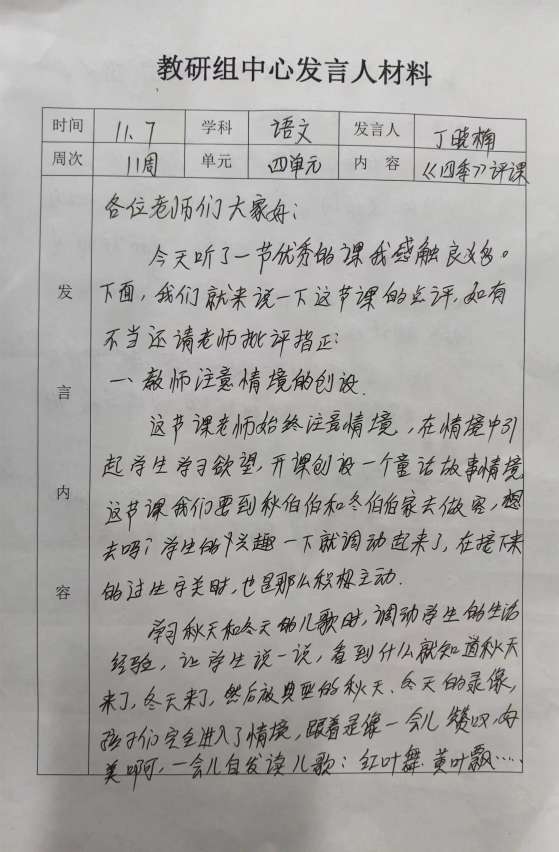 教研组中心发言人材料
时间 11.7 学科 语文 发言人 丁晓楠
周次 11周 单元 四单元 内容 《四季》评课
发言内容
各位老师们大家好:
今天听了一节优秀的课我感触良多。
下面,我们就来说一下这节课的点评,如有
不当还请老师批评指正:
一、教师注意情境的创设.
这节课老师始终注意情境,在情境中引
起学生学习欲望,开课创设一个童话故事情境
这节课我们要到秋伯伯和冬伯伯家去做客,想
去吗?学生的兴趣一下就调动起来了,在接下来
的过生字关时,也是那么积极主动.
学习秋天和冬天的儿歌时,调动学生的生活
经验,让学生说一说,看到什么就知道秋天
来了,冬天来了,然后放典型的秋天、冬天的录像,
孩子们完全进入了情境,跟着录像一会儿赞叹,好
美啊,一会儿自发读儿歌:红叶舞.黄叶飘……